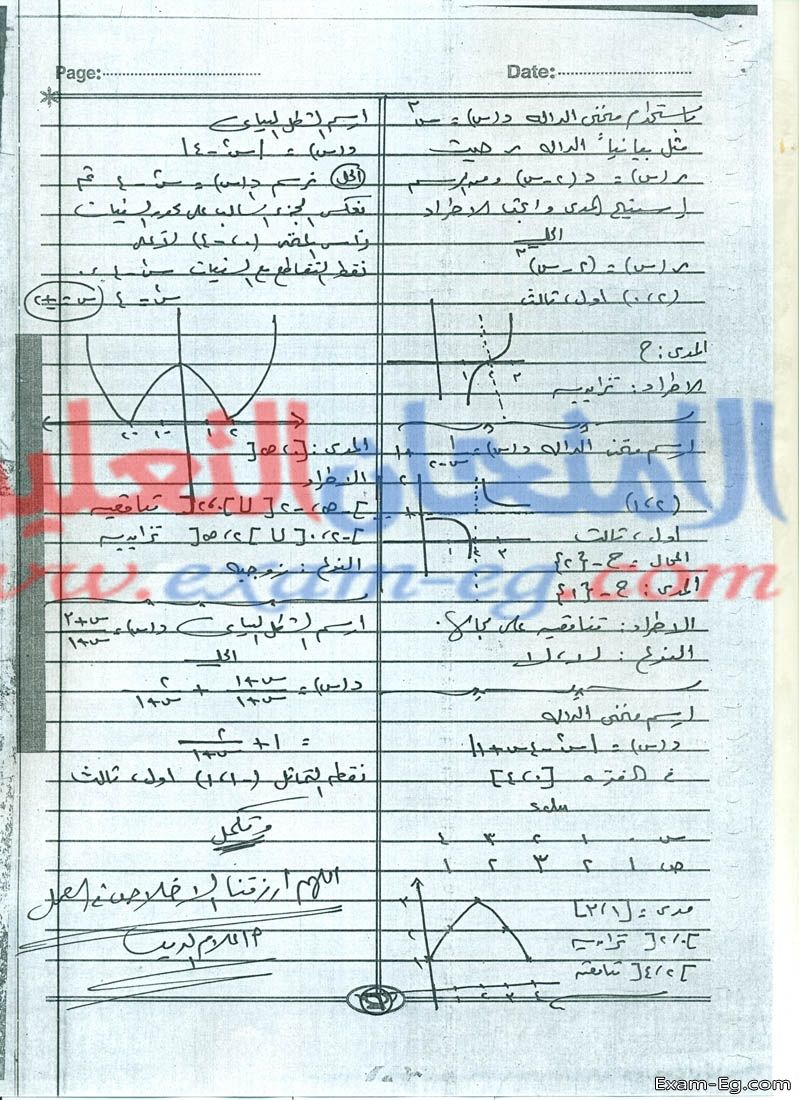 Page:
Date:
باستخدام منحنى الدالة د(س) = س٣
مثل بيانياً الدالة ر حيث
ر(س) = د(٢-س) ومن الرسم
استنتج المدى وابحث الاطراد
الحل
ر(س) = (٢-س)٣
(٠،٢) اول، ثالث
المدى: ح
الاطراد: تزايديه
١ ٢
ارسم منحنى الدالة د(س) = ١/(س-٢) + ١
(١،٢)
اول، ثالث
المجال = ح - {٢}
المدى: ح - {١}
الاطراد: تناقصيه على مجالها.
النوع: لا، لا
٢ ١
١ ٢ ٣
ارسم منحنى الدالة
د(س) = |س٢ - ٤س + ١|
في الفتره [٤،٠]
س ٠ ١ ٢ ٣ ٤
ص ١ ٢ ٣ ٢ ١
مدى = [٣،١]
]٢،٠[ تزايديه
]٤،٢[ تناقصيه
٣
٢
١
١ ٢ ٣ ٤
ارسم الشكل البيانى
د(س) = |س٢ - ٤|
الحل نرسم د(س) = س٢ - ٤ ثم
نعكس الجزء السالب على محور السينات
نقط التقاطع مع السينات س٢ - ٤ = ٠
س٢ = ٤ س = ±٢
-٢ -١ ١ ٢
المدى: [٠، ∞[
الاطراد
]-∞، -٢[ U ]٠، ٢[ تناقصيه
]-٢، ٠[ U ]٢، ∞[ تزايديه
النوع: زوجيه
ارسم الشكل البيانى د(س) = س+٣/س+١
الحل
د(س) = س+١/س+١ + ٢/س+١
= ١ + ٢/س+١
نقطه التماثل (-١،١) اول، ثالث
وتكمل
اللهم ارزقنا الاخلاص فى العمل
الامتحان التعليمى
www.exam-eg.com
Exam-Eg.com